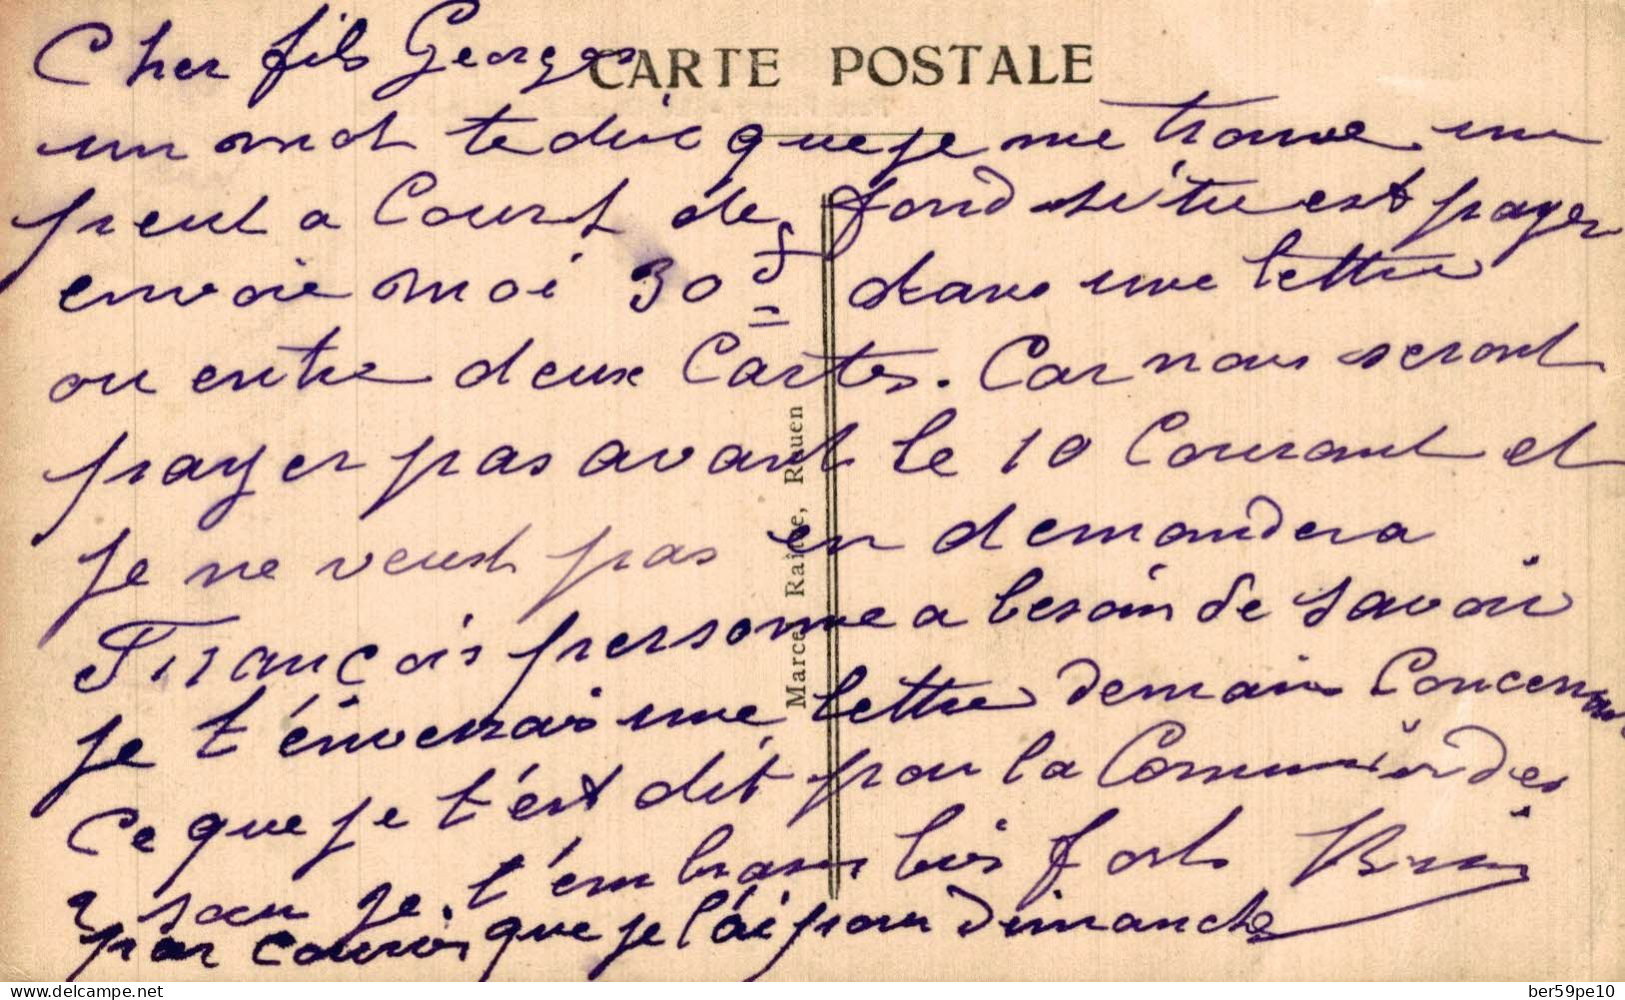 CARTE POSTALE
Cher fils Georges
un mot te dire que je me trouve un
peut a Court de fond si tu est payer
envoie moi 30 f dans une lettre
ou entre deux Cartes. Car nous seront
payer pas avant le 10 Courant et
je ne veust pas en demandera
François personne a besoin de savoir
je t'enverrais une lettre demain Concernant
Ce que je t'est dit pour la Communion des
je t'embrasse bis forts
par que je l'ai pour dimanche
Marcel Raitre, Rouen
Waterlooplace.com
ber59pe10